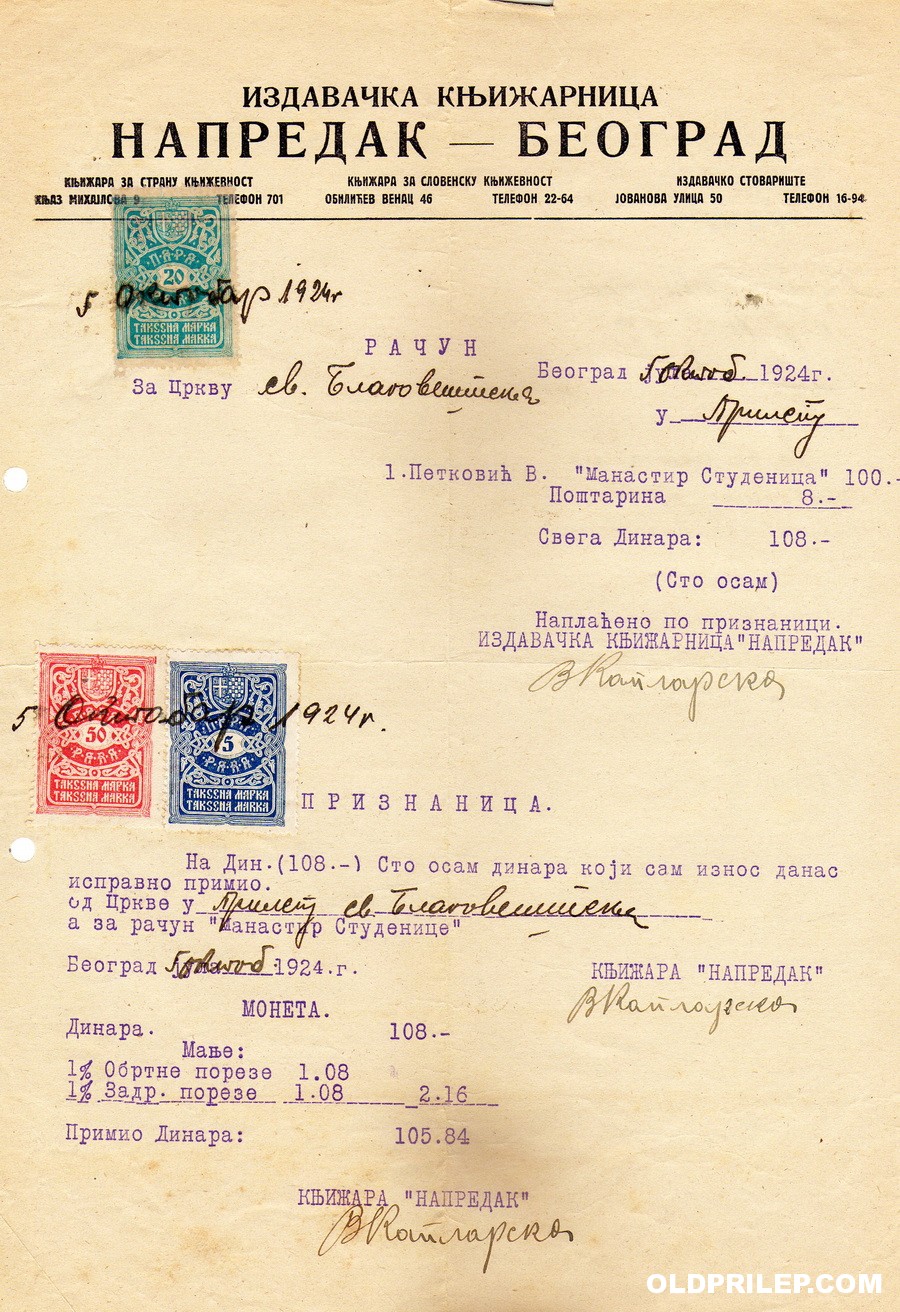 ИЗДАВАЧКА КЊИЖАРНИЦА
НАПРЕДАК — БЕОГРАД
КЊИЖАРА ЗА СТРАНУ КЊИЖЕВНОСТ КЊИЖАРА ЗА СЛОВЕНСКУ КЊИЖЕВНОСТ ИЗДАВАЧКО СТОВАРИШТЕ
КЊАЗ МИХАЈЛОВА 9 ТЕЛЕФОН 701 ОБИЛИЋЕВ ВЕНАЦ 46 ТЕЛЕФОН 22-64 ЈОВАНОВА УЛИЦА 50 ТЕЛЕФОН 16-94
ПАРА
20
5 Октобар 1924г
ТАКСЕНА МАРКА
ТАКСЕНА МАRКА
РАЧУН
Београд 5 октоб 1924г.
За Цркву св. Благовештења
у Прилепу
1.Петковић В. "Манастир Студеница" 100.-
Поштарина 8.-
Свега Динара: 108.-
(Сто осам)
Наплаћено по признаници.
ИЗДАВАЧКА КЊИЖАРНИЦА"НАПРЕДАК"
5 Октобар 1924г.
50
ПАРА
ТАКСЕНА МАРКА
ТАКСЕНА МАRКА
5
ПАРА
ТАКСЕНА МАРКА
ТАКСЕНА МАRКА
ПРИЗНАНИЦА.
На Дин.(108.-) Сто осам динара који сам износ данас
исправно примио.
од Цркве у Прилепу св. Благовештења
а за рачун "Манастир Студенице"
Београд 5 октоб 1924.г.
КЊИЖАРА "НАПРЕДАК"
МОНЕТА.
Динара. 108.-
Мање:
1% Обртне порезе 1.08
1% Задр. порезе 1.08 2.16
Примио Динара: 105.84
КЊИЖАРА "НАПРЕДАК"
OLDPRILEP.COM